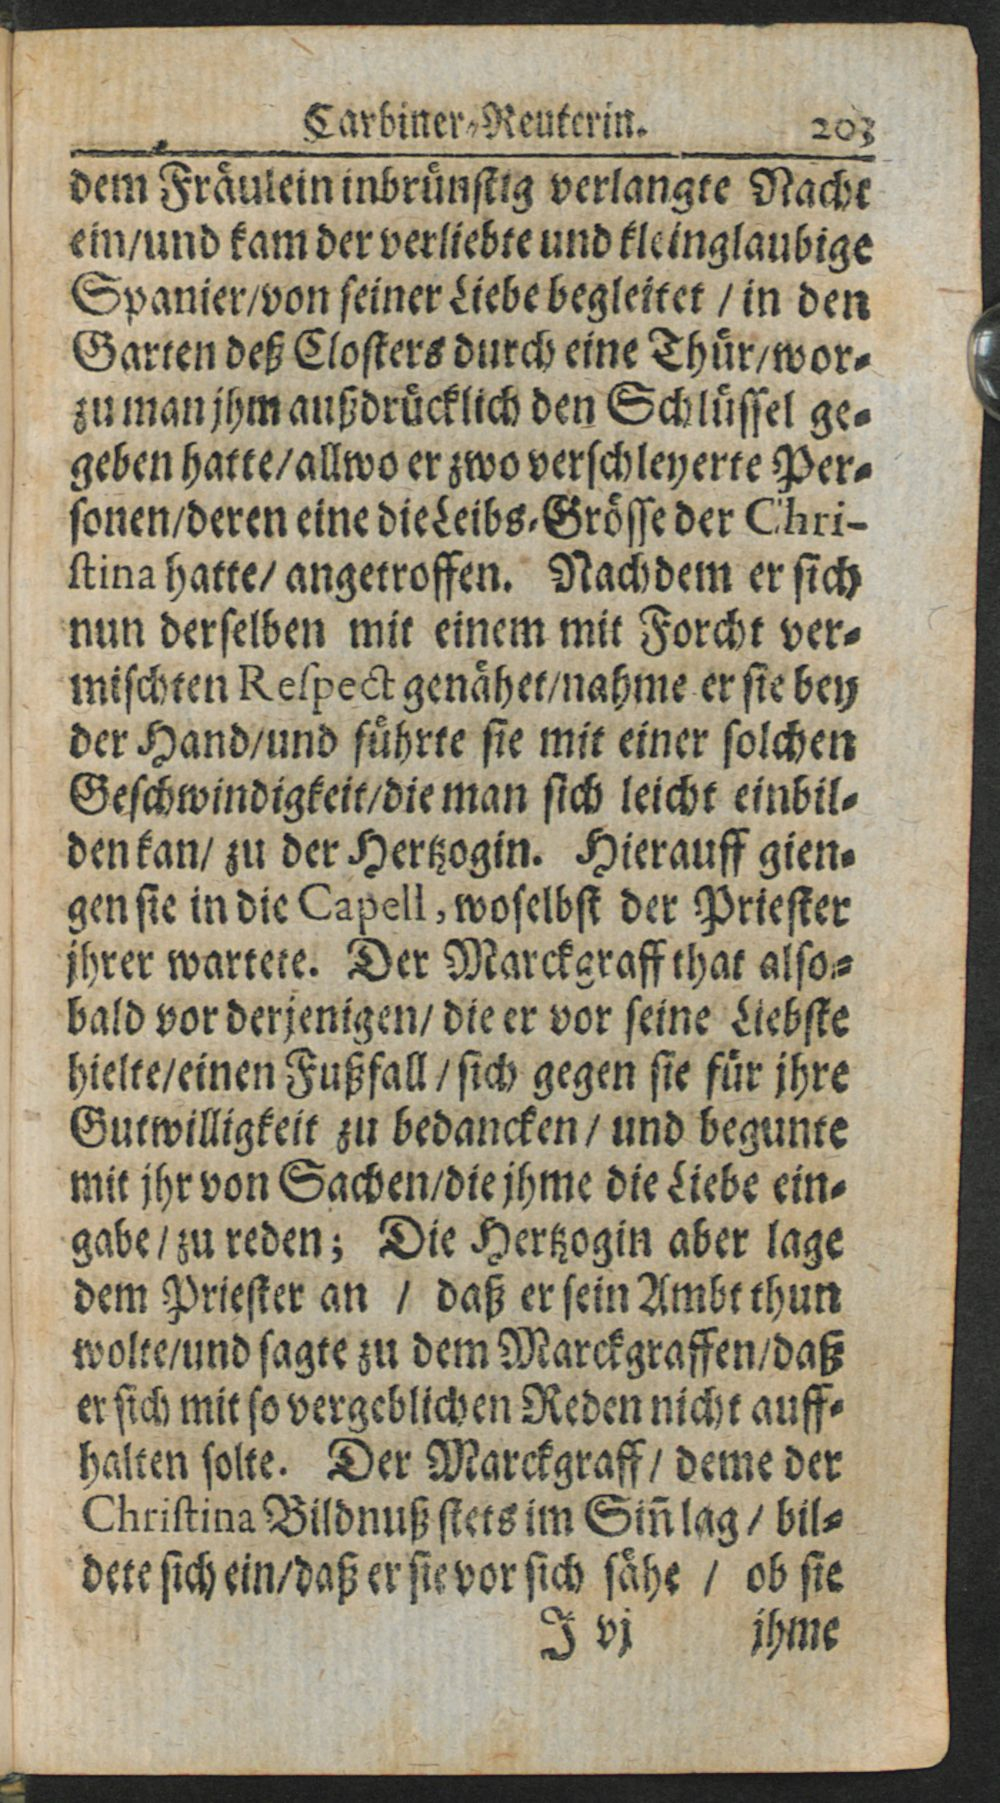 Carbiner-Reuterin. 203
dem Fräulein inbrünstig verlangte Nacht
ein/und kam der verliebte und kleinglaubige
Spanier/von seiner Liebe begleitet / in den
Garten deß Closters durch eine Thür/wor-
zu man jhm außdrücklich den Schlüssel ge-
geben hatte/allwo er zwo verschleyerte Per-
sonen/deren eine die Leibs-Grösse der Chri-
stina hatte/ angetroffen. Nachdem er sich
nun derselben mit einem mit Forcht ver-
mischten Respect genähet/nahme er sie bey
der Hand/und führte sie mit einer solchen
Geschwindigkeit/die man sich leicht einbil-
den kan/ zu der Hertzogin. Hierauff gien-
gen sie in die Capell, woselbst der Priester
jhrer wartete. Der Marckgraff that also-
bald vor derjenigen/ die er vor seine Liebste
hielte/einen Fußfall / sich gegen sie für jhre
Gutwilligkeit zu bedancken / und begunte
mit jhr von Sachen/die jhme die Liebe ein-
gabe / zu reden; Die Hertzogin aber lage
dem Priester an / daß er sein Ambt thun
wolte/und sagte zu dem Marckgraffen/daß
er sich mit so vergeblichen Reden nicht auff-
halten solte. Der Marckgraff / deme der
Christina Bildnuß stets im Siñ lag / bil-
dete sich ein/daß er sie vor sich sähe / ob sie
J vj jhme